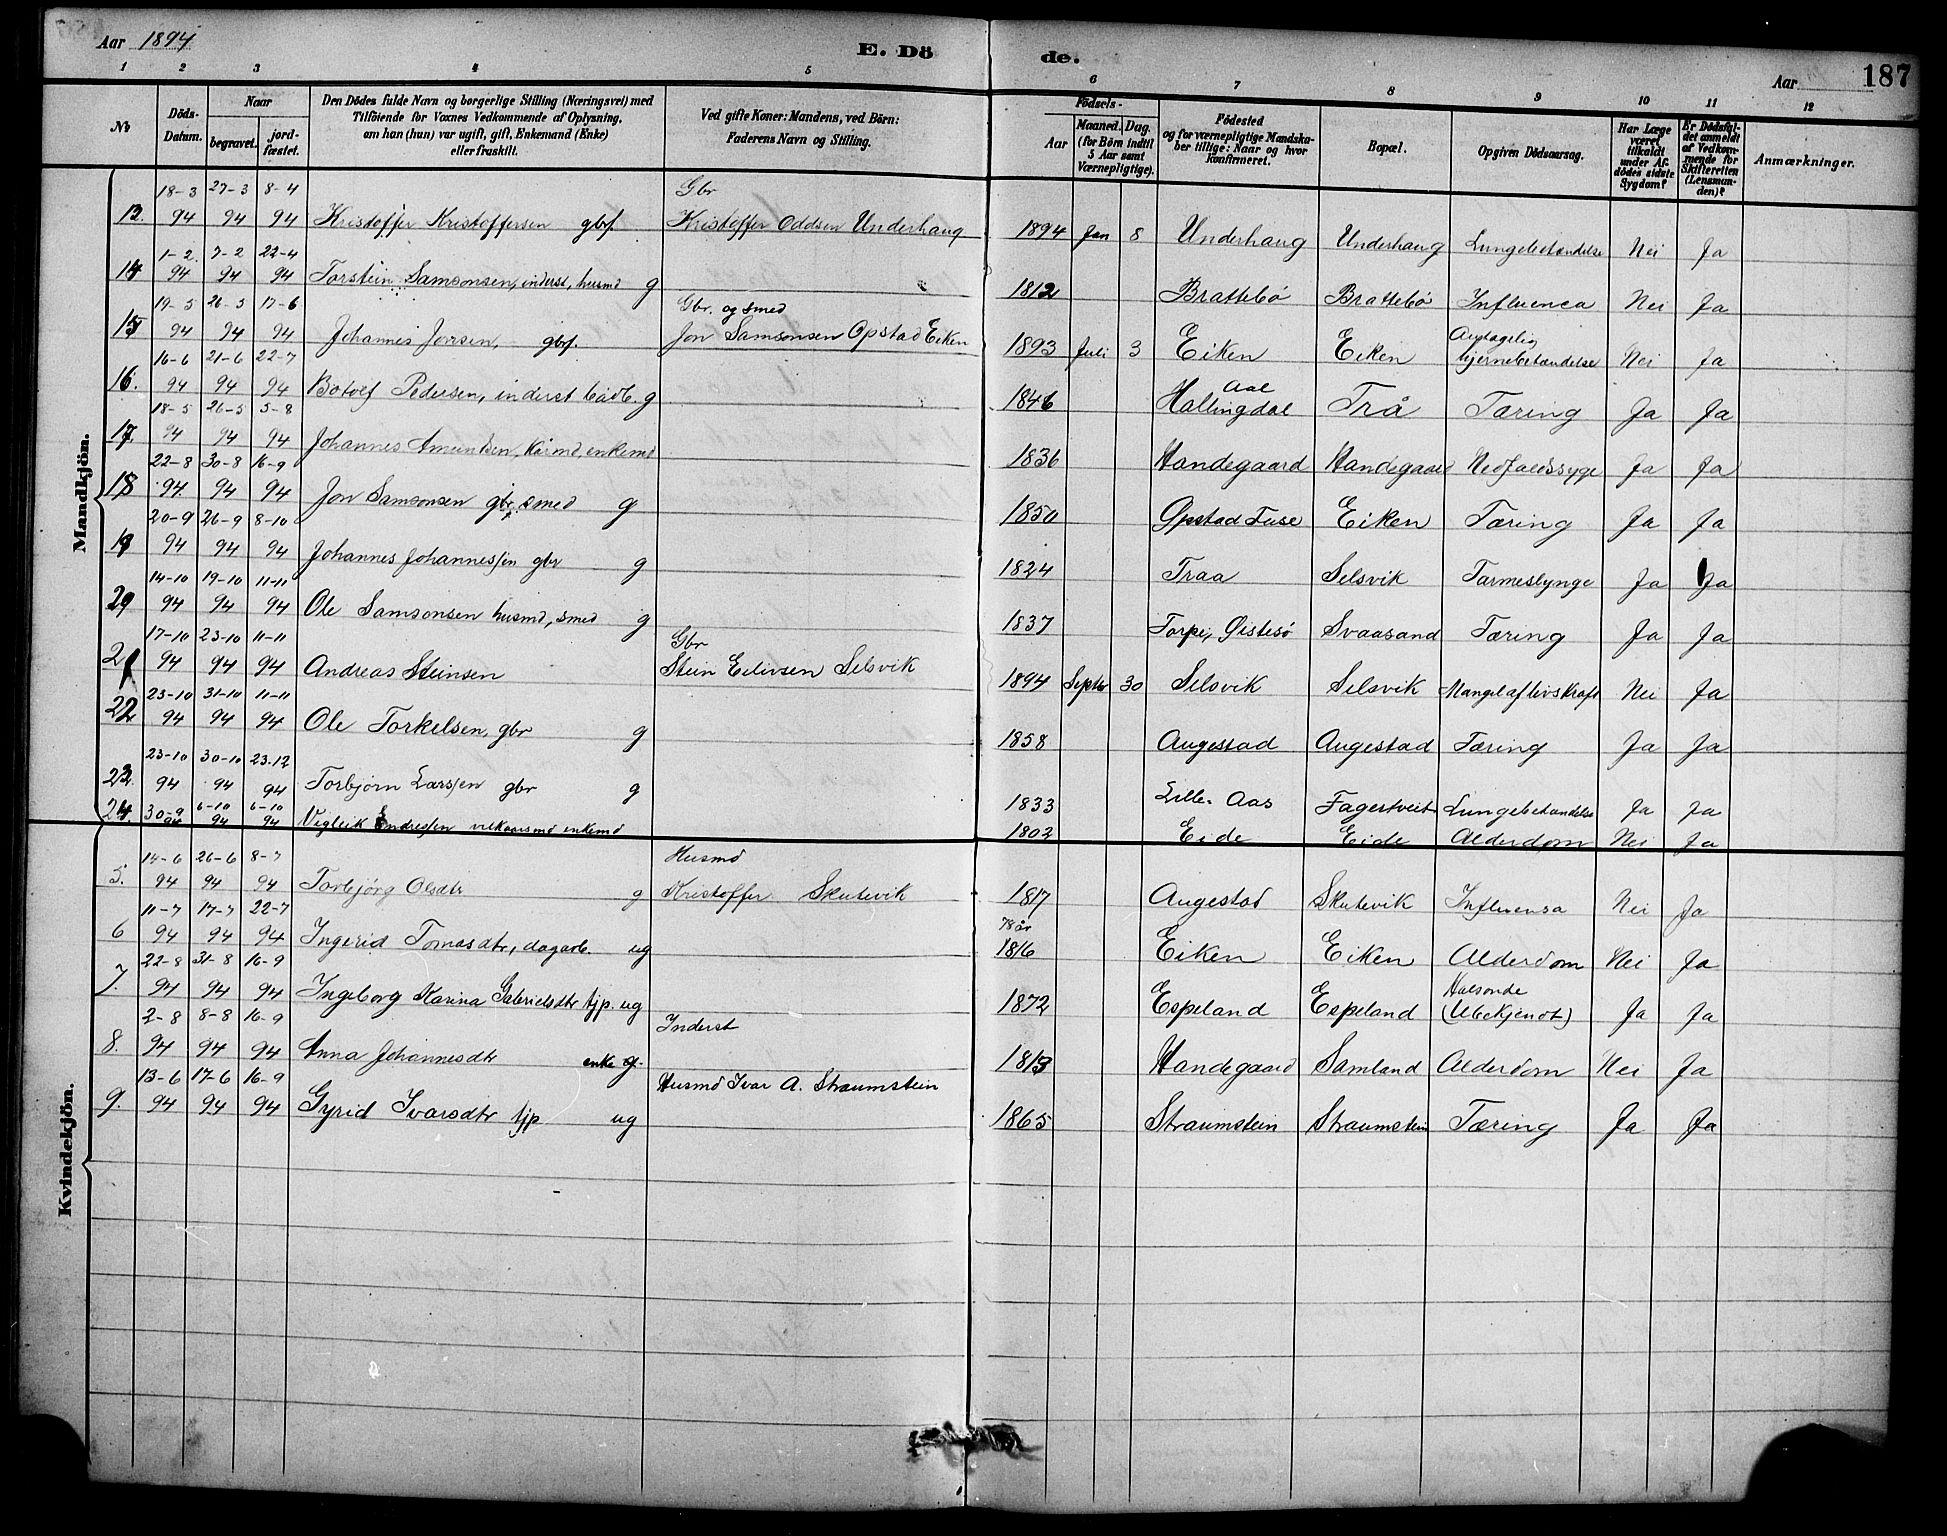 Aar 1894
E. Dö
de.
Aar
187
1 2 3 4 5 6 7 8 9 10 11 12
No
Döds-Datum.
Naar
begravet.
jord-fæstet.
Den Dödes fulde Navn og borgerlige Stilling (Næringsvei) med
Tilföiende for Voxnes Vedkommende af Oplysning,
om han (hun) var ugift, gift, Enkemand (Enke)
eller fraskilt.
Ved gifte Koner: Mandens, ved Börn:
Faderens Navn og Stilling.
Födsels-
Aar
Maaned. Dag.
(for Börn indtil
5 Aar samt
Værnepligtige).
Födested
og for værnepligtige Mandska-
ber tillige: Naar og hvor
konfirmeret.
Bopæl.
Opgiven Dödsaarsag.
Har Læge
været
tilkaldt
under Af-
dödes sidste
Sygdom?
Er Dödsfal-
det anmeldt
af Vedkom-
mende for
Skifteretten
(Lensman-
den)?
Anmærkninger.
Mandkjön.
18-3 27-3 8-4 Gbr
13. 94 94 94 Kristoffer Kristoffersen gbrf. Kristoffer Oddsen Underhaug 1894 Jan 8 Underhaug Underhaug Lungebetændelse Nei Ja
1-2. 7-2 22-4
14 94 94 94 Torstein Samsonsen, inderst, husmd g 1812 Brattebö Brattebö Influenca Nei Ja
19-5 26-5 17-6 Gbr. og smed
15 94 94 94 Johannes Jonsen, gbrf. Jon Samsonsen Opstad Eiken 1893 Juli 3 Eiken Eiken Antagelig hjernebetændelse Nei Ja
16-6 21-6 22-7
16. 94 94 94 Botolf Pedersen, inderst g 1846 Aal Hallingdal Trå Tæring Ja Ja
18-5 26-5 5-8
17. 94 94 94 Johannes Amundsen, kårmd, enkemd 1836 Handegaard Handegaard Nedfaldssyge Ja Ja
22-8 30-8 16-9
18 94. 94 94 Jon Samsonsen gbr, smed g 1850 Opstad Fuse Eiken Tæring Ja Ja
20-9 26-9 8-10
19 94 94 94 Johannes Johannessen gbr g 1824 Traa Selsvik Tarmeslynge Ja Ja
14-10 19-10 11-11
20 94 94 94 Ole Samsonsen husmd, smed g 1837 Torpe, Østesö Svaasand Tæring Ja Ja
17-10 23-10 11-11 Gbr
21 94 94 94 Andreas Steinsen Stein Eilivsen Selsvik 1894 Septbr 30 Selsvik Selsvik Mangel af livskraft Nei Ja
23-10 31-10 11-11
22 94 94 94 Ole Torkelsen, gbr g 1858 Augestad Augestad Tæring Ja Ja
23-10 30-10 23.12
23. 94 94 94 Torbjörn Larssen gbr g 1833 Lille-Aas Fagertveit Lungebetændelse Ja Ja
24. 30-9 94 6-10 94 6-10 94 Vigleik Endressen vilkaarsmd enkemd 1802 Eide Eide Alderdom Nei Ja
Kvindekjön.
14-6 26-6 8-7 Husmd
5. 94 94 94 Torbjörg Olsdtr g Kristoffer Skutevik 1817 Augestad Skutevik Influensa Nei Ja
11-7 17-7 22-7 78 år
6 94 94 94 Ingerid Tomasdtr, dagarb. ug 1816 Eiken Eiken Alderdom Nei Ja
22-8 31-8 16-9
7. 94 94 94 Ingeborg Karina Gabrielsdtr tjp. ug 1872 Espeland Espeland Halsonde (Ubekjendt) Ja Ja
2-8 8-8 16-9 Inderst
8. 94 94 94 Anna Johannesdtr enke 1813 Handegaard Samland Alderdom Nei Ja
13-6 17-6 16-9 Husmd Ivar A. Straumstein
9. 94 94 94 Gyrid Ivarsdtr tjp ug 1865 Straumstein Straumstein Tæring Ja Ja